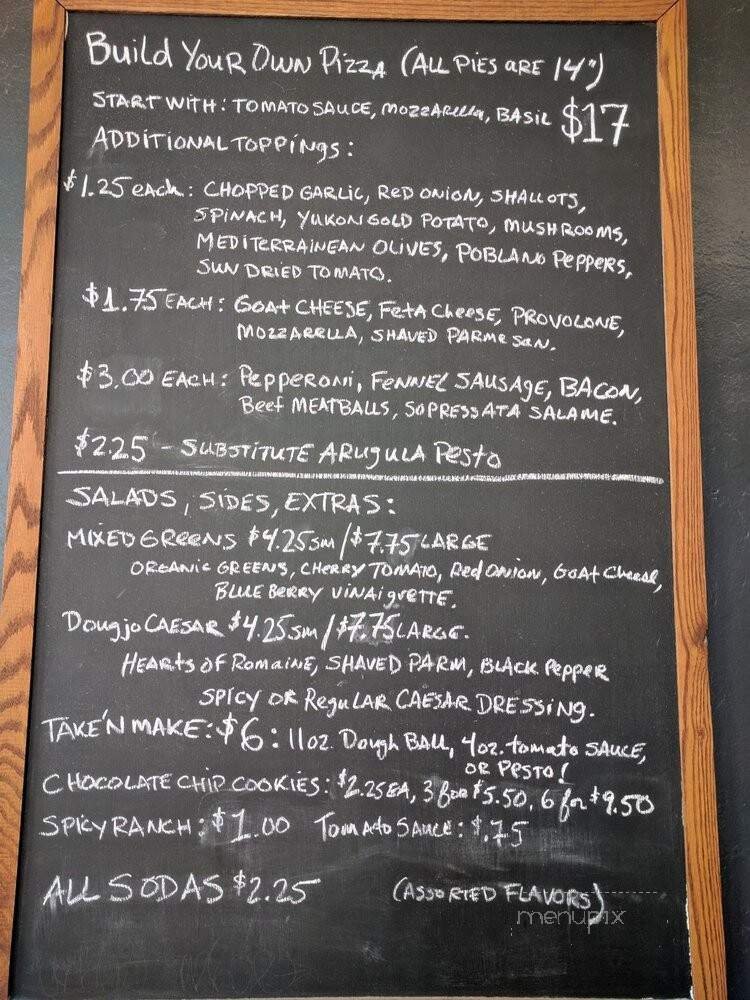 Build Your Own Pizza (All pies are 14")
Start with: Tomato Sauce, Mozzarella, Basil $17
Additional Toppings:
$1.25 each: Chopped Garlic, Red Onion, Shallots,
Spinach, Yukon Gold Potato, Mushrooms,
Mediterrainean Olives, Poblano Peppers,
Sun Dried Tomato.
$1.75 each: Goat Cheese, Feta Cheese, Provolone,
Mozzarella, Shaved Parmesan.
$3.00 each: Pepperoni, Fennel Sausage, Bacon,
Beef Meatballs, Sopressata Salame.
$2.25 - Substitute Arugula Pesto
Salads, Sides, Extras:
Mixed Greens $4.25 sm / $7.75 Large
Organic Greens, Cherry Tomato, Red Onion, Goat Cheese,
Blueberry Vinaigrette.
Dougjo Caesar $4.25 sm / $7.75 Large.
Hearts of Romaine, Shaved Parm, Black Pepper
Spicy or Regular Caesar Dressing.
Take 'n Make: $6: 11oz. Dough Ball, 4oz. tomato sauce,
or Pesto!
Chocolate Chip Cookies: $2.25 ea, 3 for $5.50, 6 for $9.50
Spicy Ranch: $1.00 Tomato Sauce: $.75
All Sodas $2.25 (Assorted Flavors)
menupix